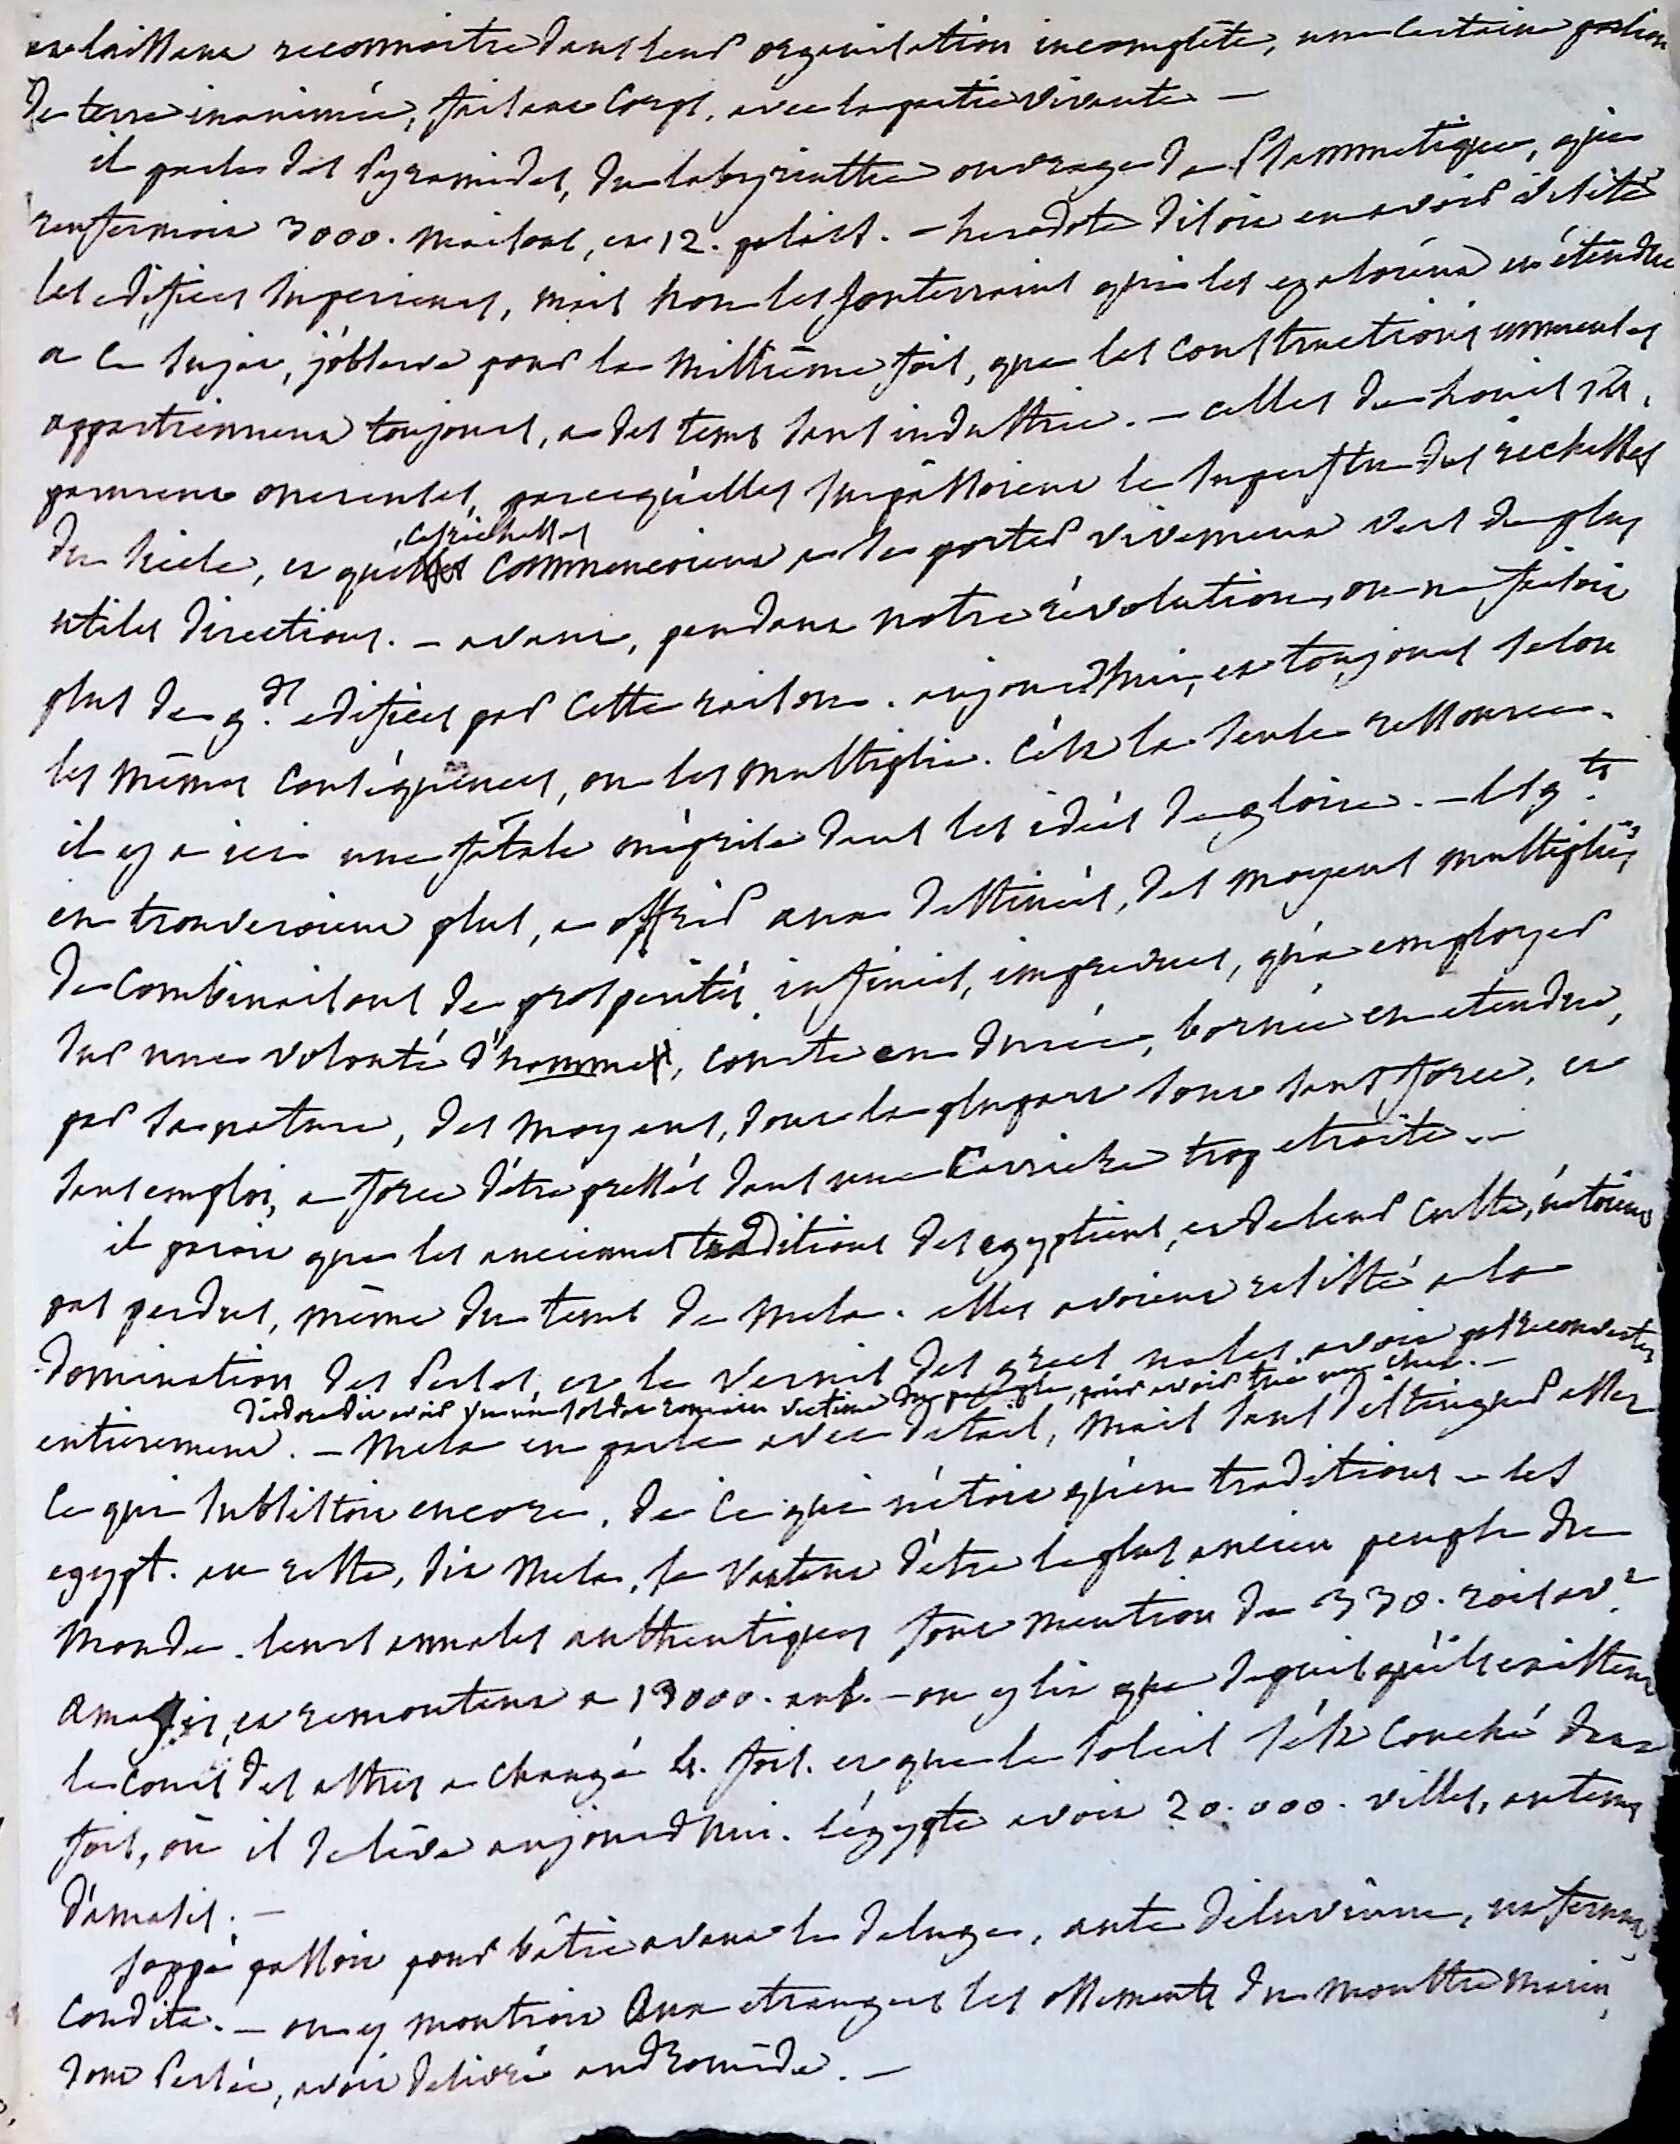 et laissant reconnoitre dans leur organisation incomplète, une certaine portion
de terre inanimée, faisant corps, avec la partie vivante —
il parle des Pyramides, du labyrinthe ouvrage de Psammetique, qui
renfermoit 3000. maisons, et 12. palais. — herodote disoit en avoir visité
les edifices superieurs, mais non les souterrains qui les egaloient en étendue
a ce sujet, j'observe pour la millième fois, que les constructions immenses
appartiennent toujours, a des tems sans industrie. — celles de Louis 14.
parurent onereuses, parcequ'elles surpassoient le superflu des richesses
du siecle, et que ces richesses commencoient a se porter vivement vers de plus
utiles directions. — avant, pendant notre révolution, on ne faisoit
plus de gds. edifices par cette raison. aujourd'hui, et toujours selon
les mêmes conséquences, on les multiplie. c'est la seule ressource.
il y a ici une fatale méprise dans les idées de gloire. — les gts.
en trouveroient plus, a offrir aux destinées, des moyens multipliés
de combinaisons de prosperités infinies, imprevues, qu'a employer
sur une volonté d'homme, courte en durée, bornée en etendue,
par sa nature, des moyens, dont la plupart sont sans force, et
sans emploi, a force d'être pressés dans une carriere trop etroite. —
il paroit que les anciennes traditions des egyptiens, et de leur culte, n'etoient
pas perdues, même du tems de Mela. elles avoient resisté a la
domination des Perses, et le vernis des grecs ne les avoit pas recouvertes
diodore dit avoir vu un soldat romain victime du peuple, pour avoir tué un chat. —
entierement. — Mela en parle avec detail, mais sans distinguer assez
ce qui subsistoit encore, de ce qui n'étoit qu'en traditions — les
egypt. au reste, dit Mela, se vantent d'être le plus ancien peuple du
monde. leurs annales authentiques font mention de 330. rois avt.
Amasis, et remontent a 13000. ans. — on y lit que depuis qu'ils existent
le cours des astres a changé 4. fois. et que le soleil s'est couché deux
fois, où il se lève aujourd'hui. l'égypte avoit 20.000. villes, au tems
d'amasis. —
Joppé passoit pour bâtie avant le deluge, ante diluvium,
condita. — on y montroit aux etrangers les ossements du monstre marin,
dont Persée, avoit delivré andromède. —